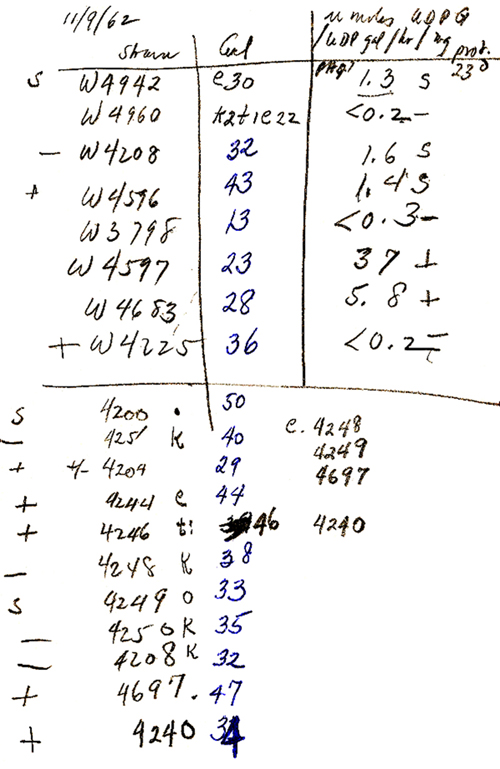 11/9/62
u moles UDPG
/UDPgal/hr/mg prot.
Strain Gal 23°
S W4942 e30 1.3 S
W4960 k2t1e22 <0.2 -
- W4208 32 1.6 S
+ W4596 43 1.4 S
W3798 13 <0.3 -
W4597 23 37 +
W4683 28 5.8 +
+ W4225 36 <0.2 -
S 4200 . 50
- 4251 k 40 e. 4248
4249
+ +/- 4209 29 4697
+ 4244 e 44
+ 4246 t: 46 4240
- 4248 k 38
S 4249 o 33
- 4250 k 35
- 4208 k 32
+ 4697 . 47
+ 4240